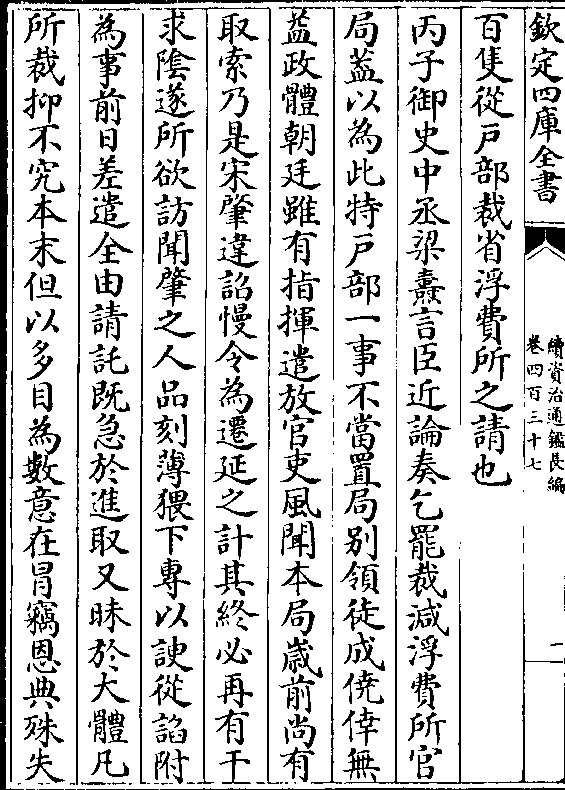 欽定四庫全書
續資治通鑑長編
卷四百三十七
二
百隻從戸部裁省浮費所之請也
丙子御史中丞梁燾言臣近論奏乞罷裁減浮費所官
局葢以為此特戸部一事不當置局别領徒成僥倖無
葢政體朝廷雖有指揮遣放官吏風聞本局嵗前尚有
取索乃是宋肇違詔慢令為遷延之計其終必再有干
求隂遂所欲訪聞肇之人品刻薄猥下專以諛從謟附
為事前日差遣全由請託既急於進取又昧於大體凡
所裁抑不究本末但以多目為數意在冒竊恩典殊失